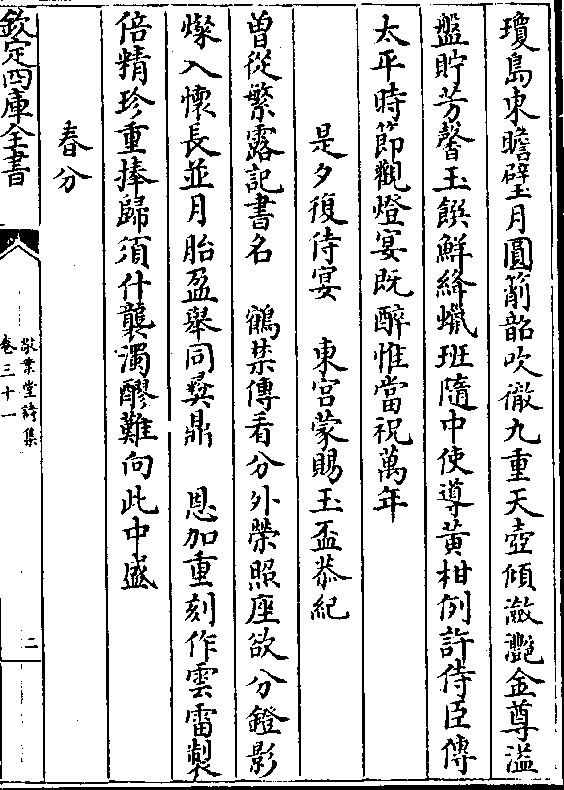 瓊島東瞻璧月圓簫韶吹徹九重天壺傾瀲灧金尊溢
盤貯芳馨玉饌鮮絳蠟班隨中使導黃柑例許侍臣傳
太平時節觀燈宴既醉惟當祝萬年
是夕復侍宴　東宮蒙賜玉盃恭紀
曽從繁露記書名　鶴禁傳看分外榮照座欲分鐙影
燦入懷長並月胎盈舉同彛鼎　恩加重刻作雲雷製
倍精珍重捧歸須什襲濁醪難向此中盛
春分
欽定四庫全書
敬業堂詩集
卷三十一
二